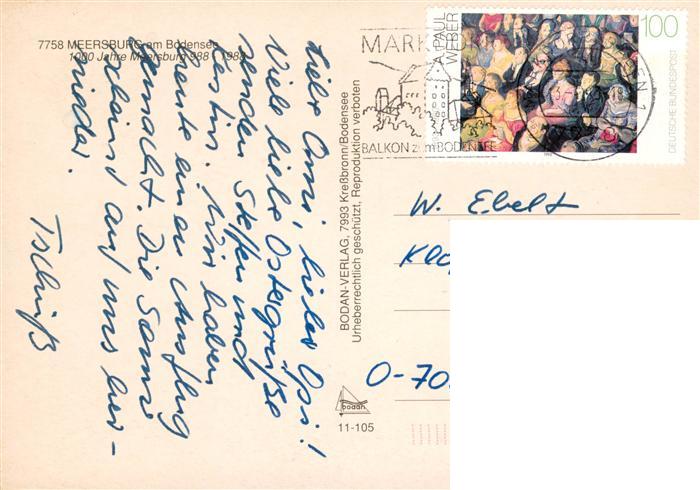 7758 MEERSBURG am Bodensee
1000 Jahre Meersburg 988 - 1988
Liebe Omi, lieber Opi!
Viele liebe Ostergrüße
senden Steffen und
haben
heute einen Ausflug
gemacht. Die Sonne
scheint auf uns her-
nieder.
Tschüß
BODAN-VERLAG, 7993 Kreßbronn/Bodensee
Urheberrechtlich geschützt, Reproduktion verboten
bodan
11-105
MARK
BALKON zum BODENSEE
EN 1
A. PAUL
WEBER
100
DEUTSCHE BUNDESPOST
W. Ebelt
Klo
O-70